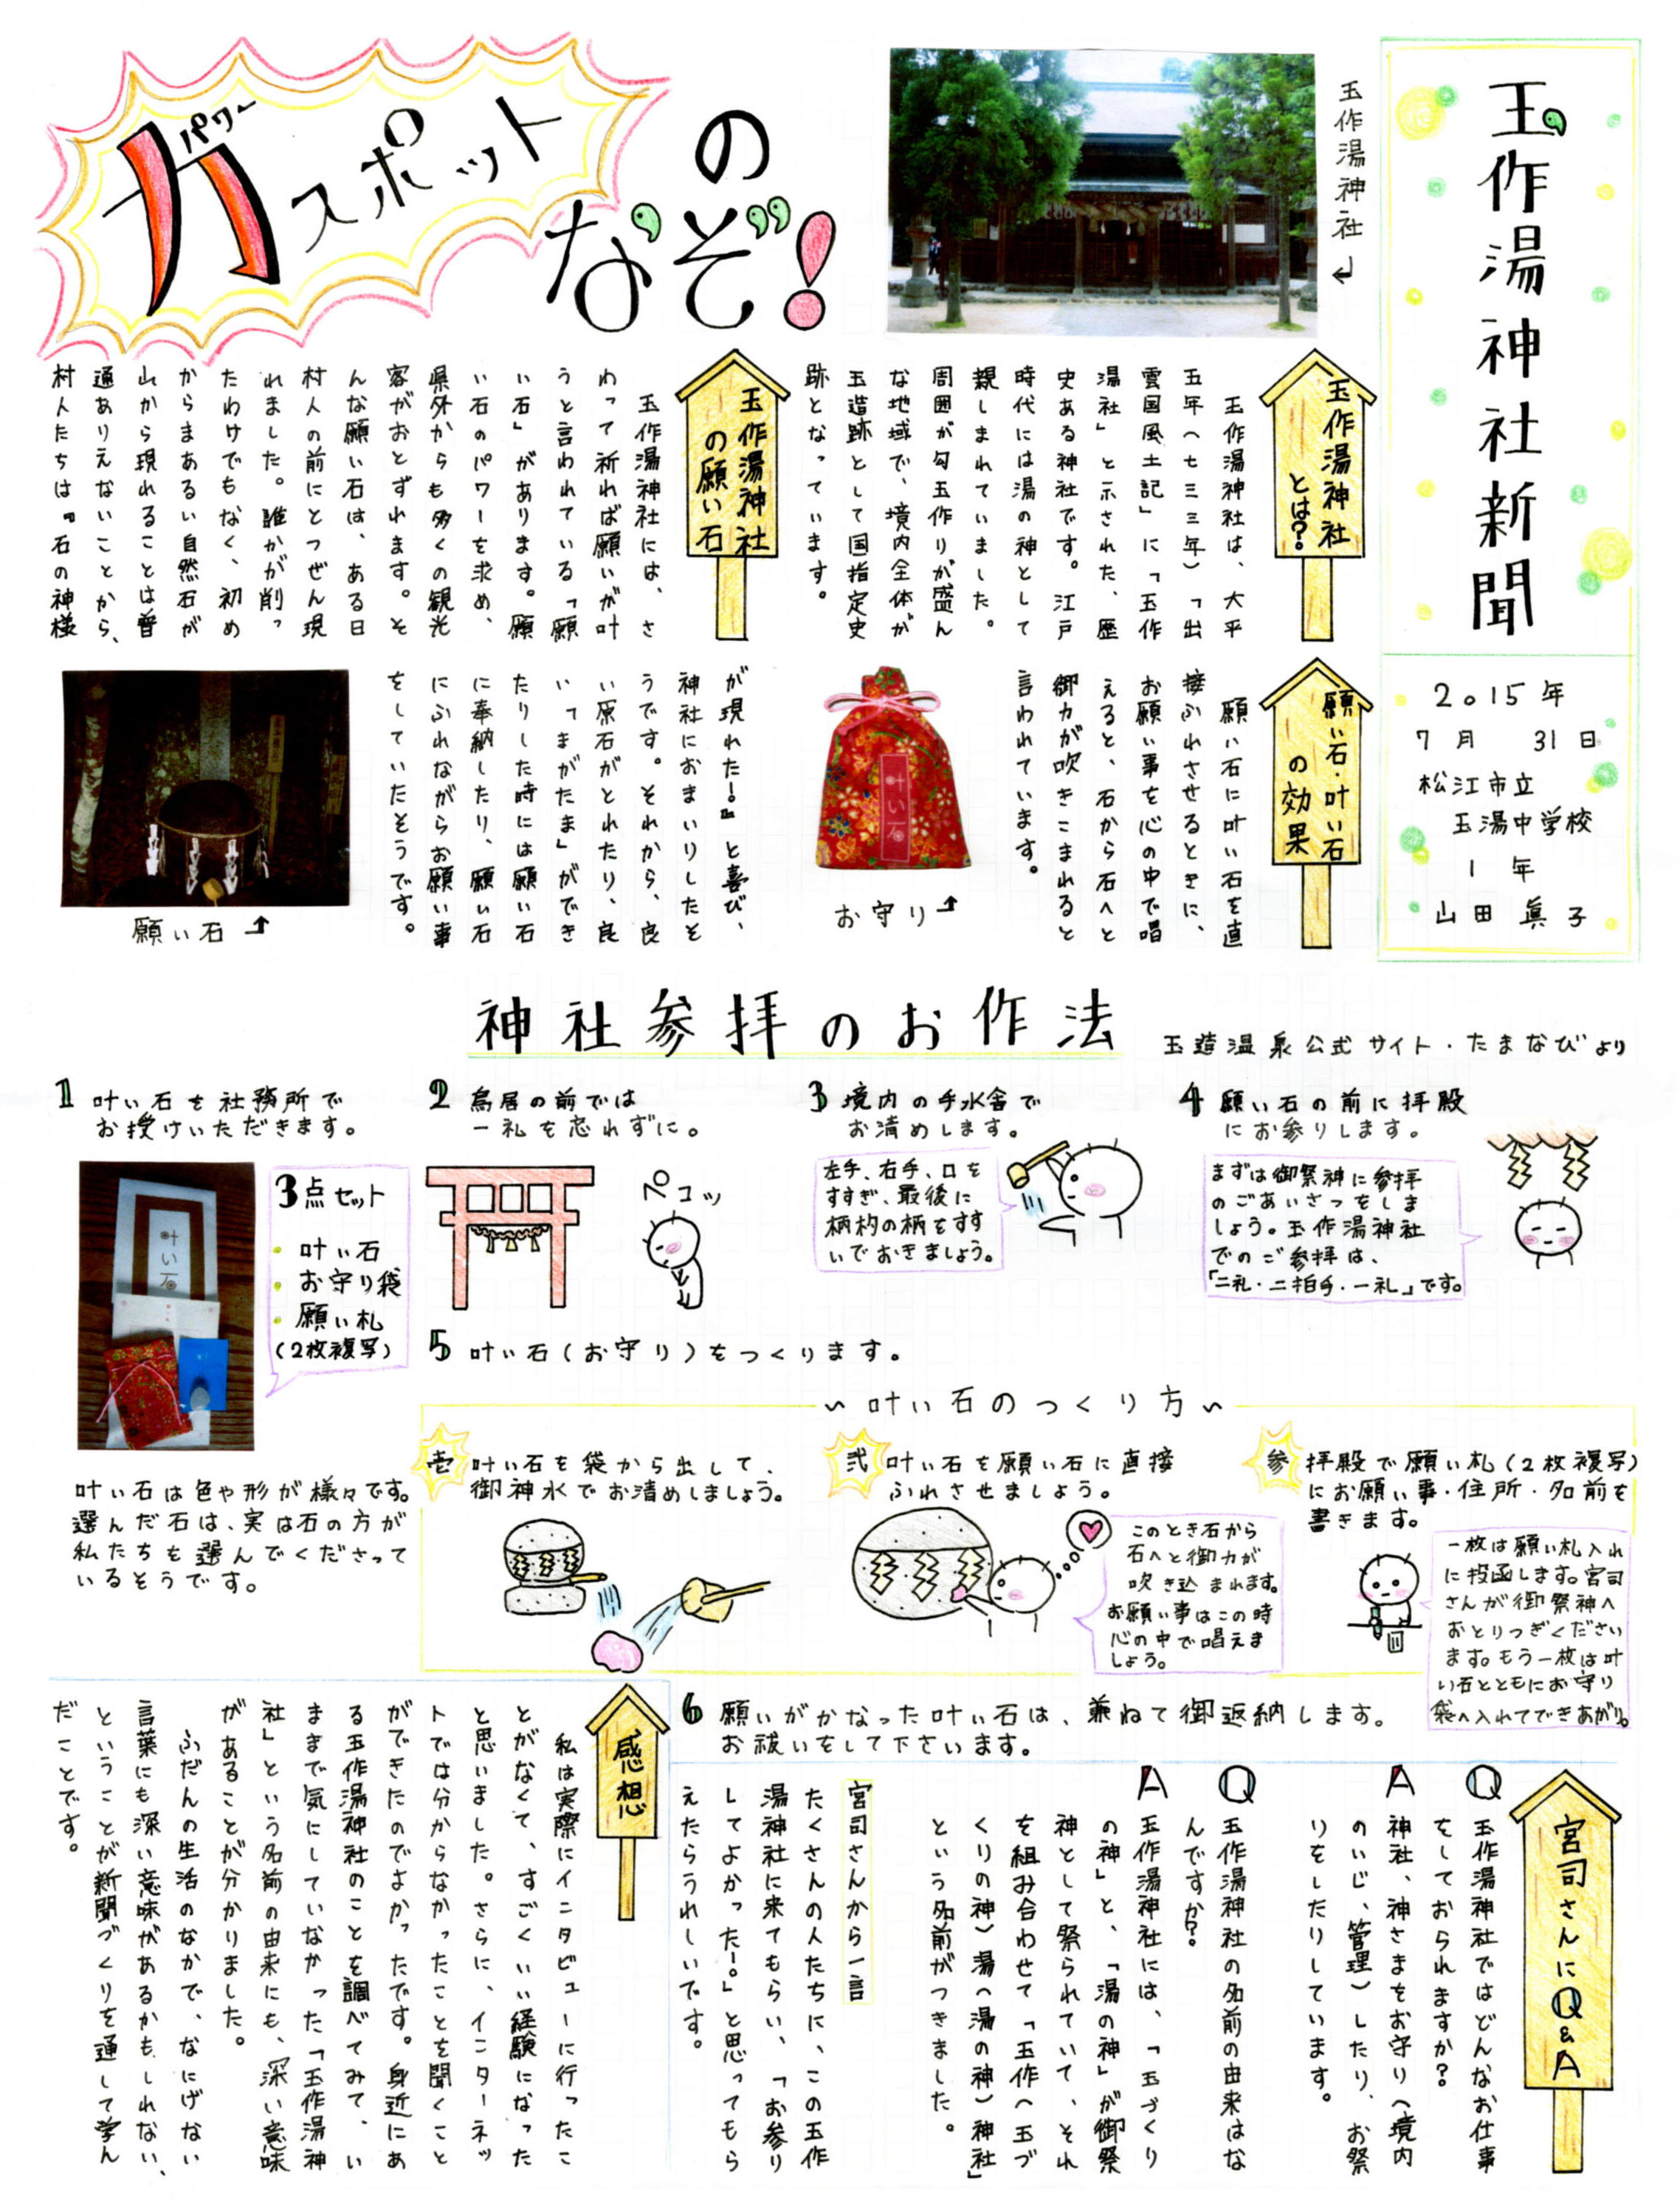 玉作湯神社新聞
2015年
7月 31日
松江市立
玉湯中学校
1年
山田 眞子
玉作湯神社
力スポットのなぞ!
パワー
玉作湯神社
とは?
玉作湯神社は、大平
五年(七三三年)「出
雲国風土記」に「玉作
湯社」と示された、歴
史ある神社です。江戸
時代には湯の神として
親しまれていました。
周囲が勾玉作りが盛ん
な地域で、境内全体が
玉造跡として国指定史
跡となっています。
玉作湯神社
の願い石
玉作湯神社には、さ
わって祈れば願いが叶
うと言われている「願
い石」があります。願
い石のパワーを求め、
県外からも多くの観光
客がおとずれます。そ
んな願い石は、ある日
村人の前にとつぜん現
れました。誰かが削っ
たわけでもなく、初め
からまあるい自然石が
山から現れることは普
通ありえないことから、
村人たちは『石の神様
が現れた!』と喜び、
神社におまいりしたそ
うです。それから、良
い原石がとれたり、良
い「まがたま」ができ
たりした時には願い石
に奉納したり、願い石
にふれながらお願い事
をしていたそうです。
願い石
願い石・叶い石
の効果
願い石に叶い石を直
接ふれさせるときに、
お願い事を心の中で唱
えると、石から石へと
御力が吹きこまれると
言われています。
叶い石
お守り
神社参拝のお作法
玉造温泉公式サイト・たまなびより
1 叶い石を社務所で
お授けいただきます。
3点セット
・叶い石
・お守り袋
・願い札
(2枚複写)
叶い石
叶い石は色や形が様々です。
選んだ石は、実は石の方が
私たちを選んでくださって
いるそうです。
2 鳥居の前では
一礼を忘れずに。
ペコッ
3 境内の手水舎で
お清めします。
左手、右手、口を
すすぎ、最後に
柄杓の柄をすす
いでおきましょう。
4 願い石の前に拝殿
にお参りします。
まずは御祭神に参拝
のごあいさつをしま
しょう。玉作湯神社
でのご参拝は、
「二礼・二拍手・一礼」です。
5 叶い石(お守り)をつくります。
~叶い石のつくり方~
壱 叶い石を袋から出して、
御神水でお清めしましょう。
弐 叶い石を願い石に直接
ふれさせましょう。
このとき石から
石へと御力が
吹き込まれます。
お願い事はこの時
心の中で唱えま
しょう。
参 拝殿で願い札(2枚複写)
にお願い事・住所・名前を
書きます。
一枚は願い札入れ
に投函します。宮司
さんが御祭神へ
おとりつぎください
ます。もう一枚は叶
い石とともにお守り
袋へ入れてできあがり。
6 願いがかなった叶い石は、兼ねて御返納します。
お祓いをして下さいます。
宮司さんにQ&A
Q 玉作湯神社ではどんなお仕事
をしておられますか?
A 神社、神さまをお守り(境内
のいじ、管理)したり、お祭
りをしたりしています。
Q 玉作湯神社の名前の由来はな
んですか?
A 玉作湯神社には、「玉づくり
の神」と、「湯の神」が御祭
神として祭られていて、それ
を組み合わせて「玉作(玉づ
くりの神)湯(湯の神)神社」
という名前がつきました。
宮司さんから一言
たくさんの人たちに、この玉作
湯神社に来てもらい、「お参り
してよかった!。」と思ってもら
えたらうれしいです。
感想
私は実際にインタビューに行ったこ
とがなくて、すごくいい経験になった
と思いました。さらに、インターネッ
トでは分からなかったことを聞くこと
ができたのでよかったです。身近にあ
る玉作湯神社のことを調べてみて、い
ままで気にしていなかった「玉作湯神
社」という名前の由来にも、深い意味
があることが分かりました。
ふだんの生活のなかで、なにげない
言葉にも深い意味があるかもしれない、
ということが新聞づくりを通して学ん
だことです。